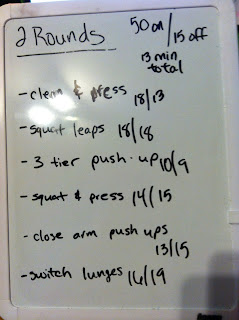 2 Rounds
50 on/15 off
13 min total
- clean & press 18/13
- squat leaps 18/18
- 3 tier push-up 10/9
- squat & press 14/15
- close arm push ups
13/15
- switch lunges 16/19